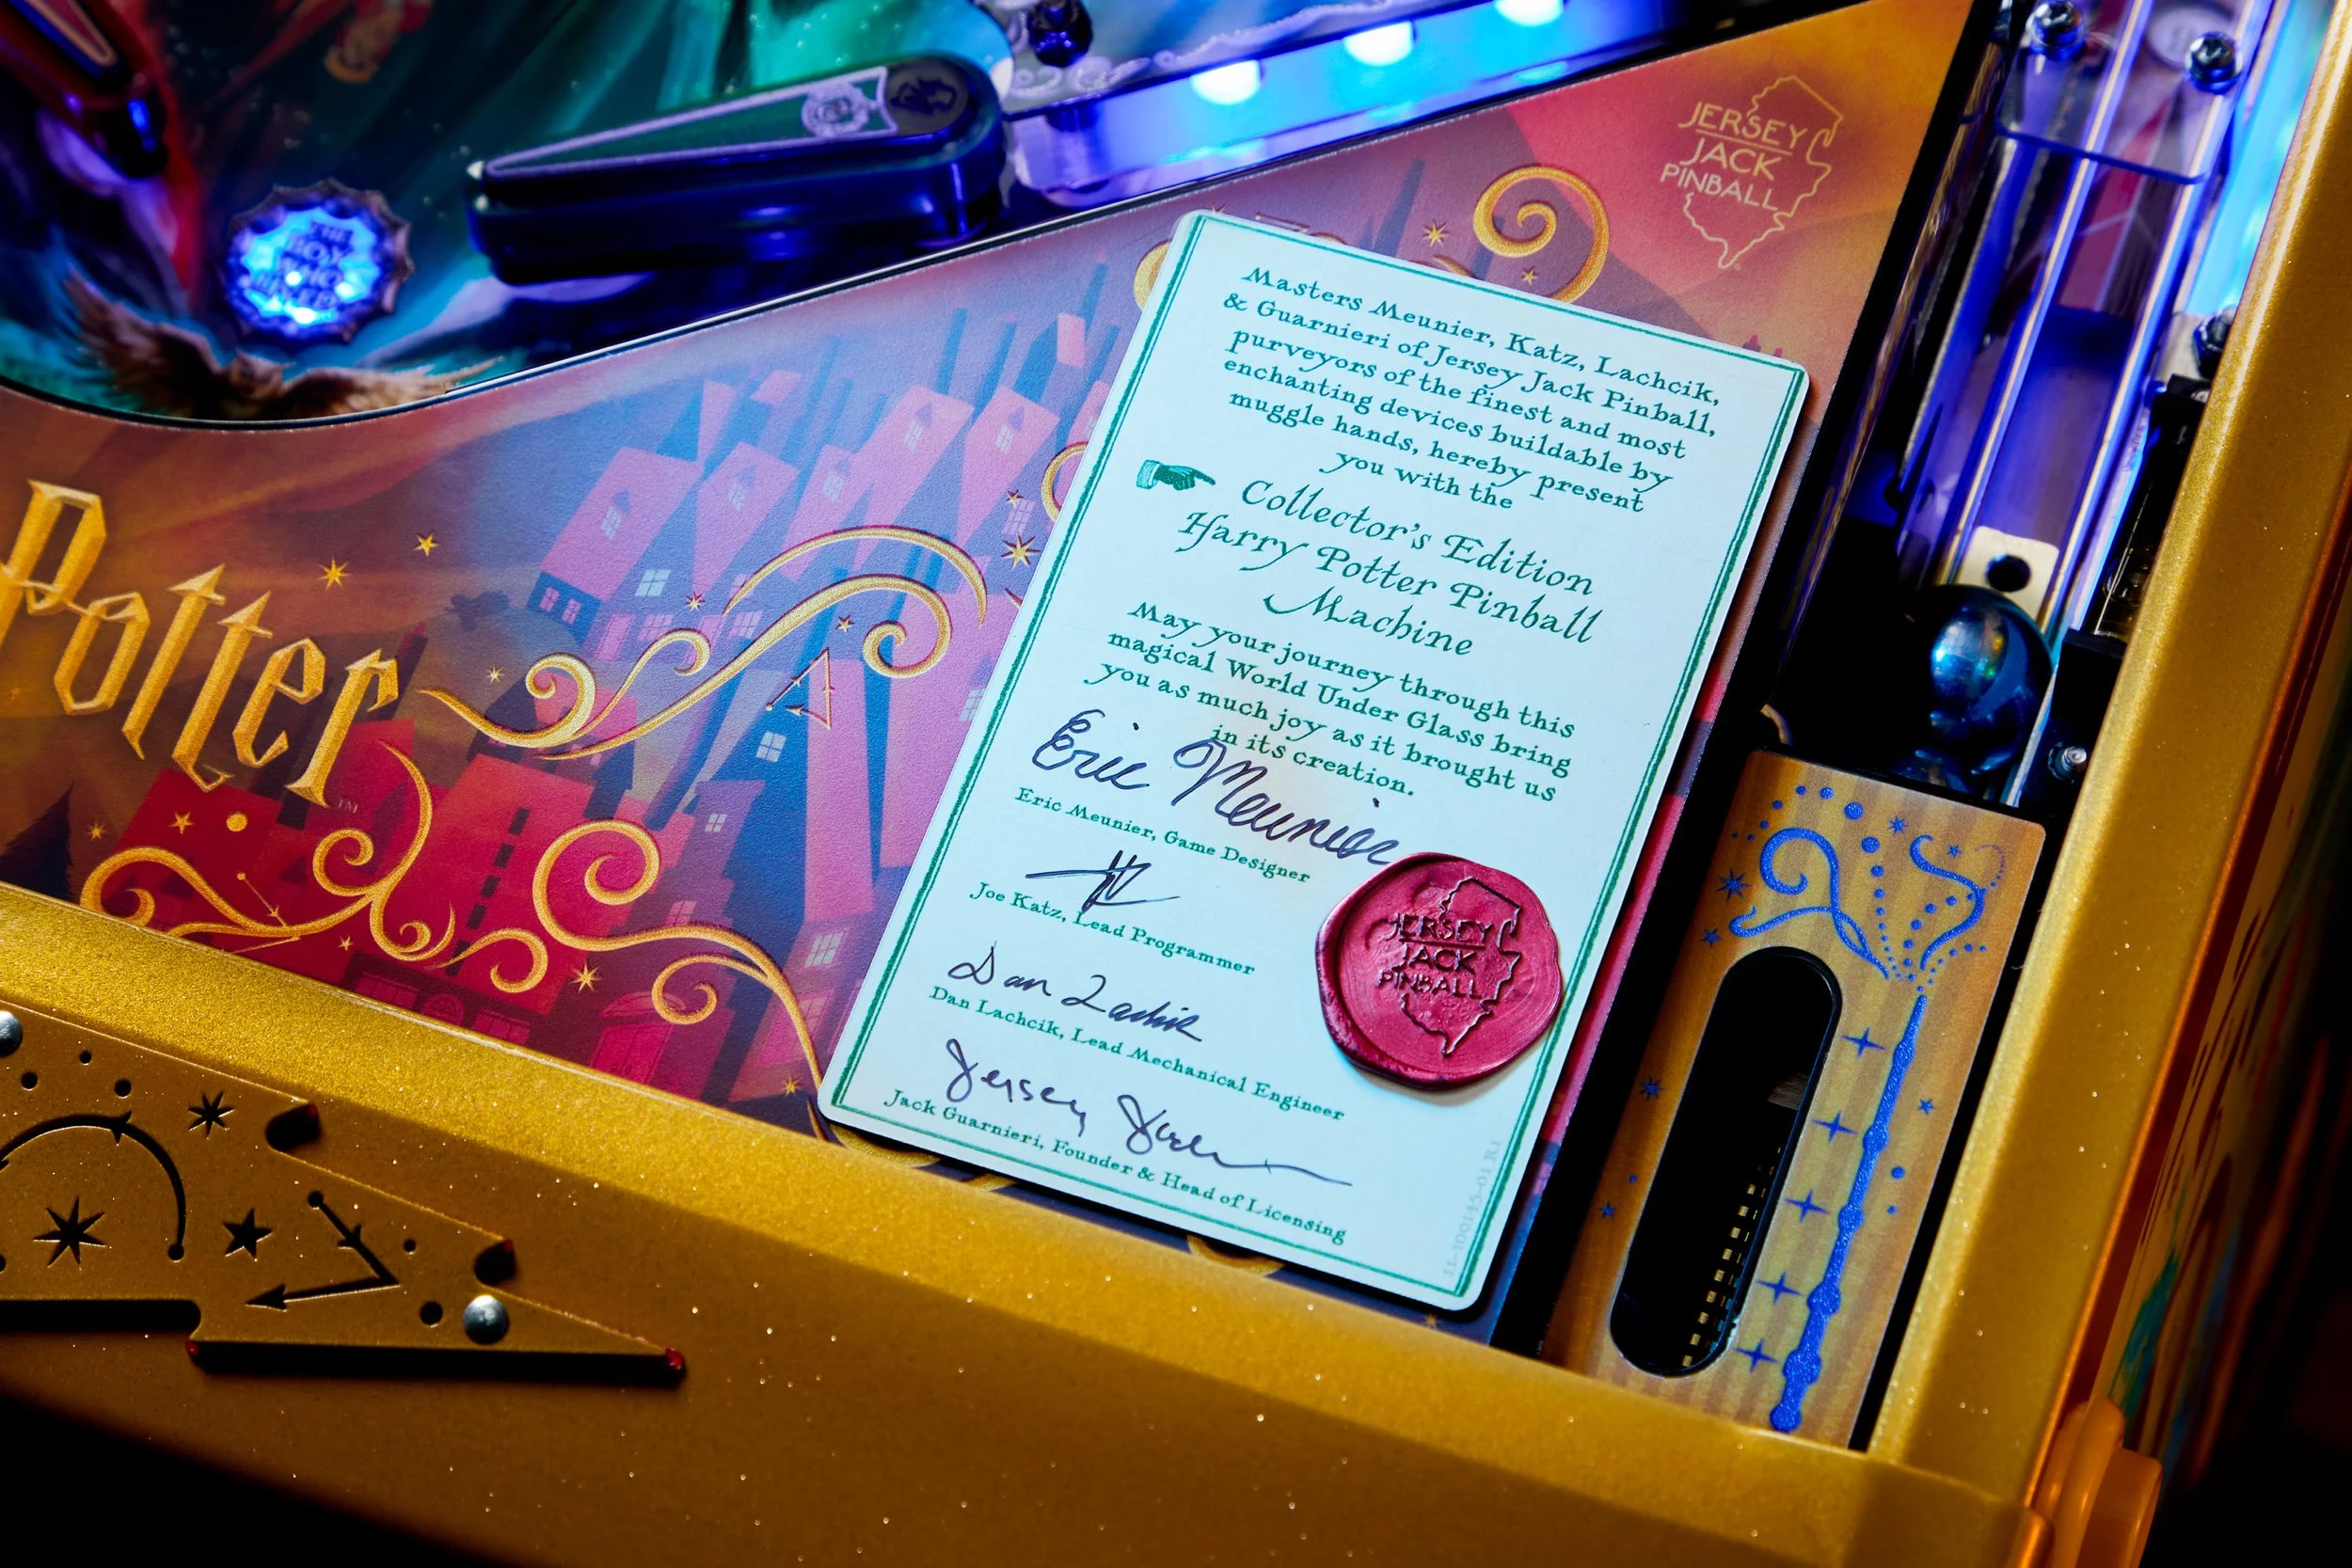 THE
BOY
WHO
LIVED
JERSEY
JACK
PINBALL
Potter
TM
Masters Meunier, Katz, Lachcik,
& Guarnieri of Jersey Jack Pinball,
purveyors of the finest and most
enchanting devices buildable by
muggle hands, hereby present
you with the
Collector's Edition
Harry Potter Pinball
Machine
May your journey through this
magical World Under Glass bring
you as much joy as it brought us
in its creation.
Eric Meunier
Eric Meunier, Game Designer
Joe Katz, Lead Programmer
Dan Lachcik
Dan Lachcik, Lead Mechanical Engineer
Jersey Jack
Jack Guarnieri, Founder & Head of Licensing
JERSEY
JACK
PINBALL
11-100145-01 R.1